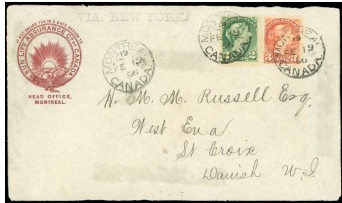 VIA NEW YORK
SUN LIFE ASSURANCE CO. OF CANADA
HEAD OFFICE,
MONTREAL.
MONTREAL
19
FE 19
96
CANADA
W. M. Russell Esq.
West End
St Croix
Danish W. I